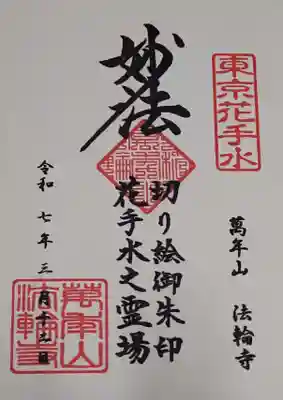 東京花手水
萬年山 法輪寺
妙法
切り絵御朱印
花手水之霊場
令和七年三月十三日
萬年山
法輪寺